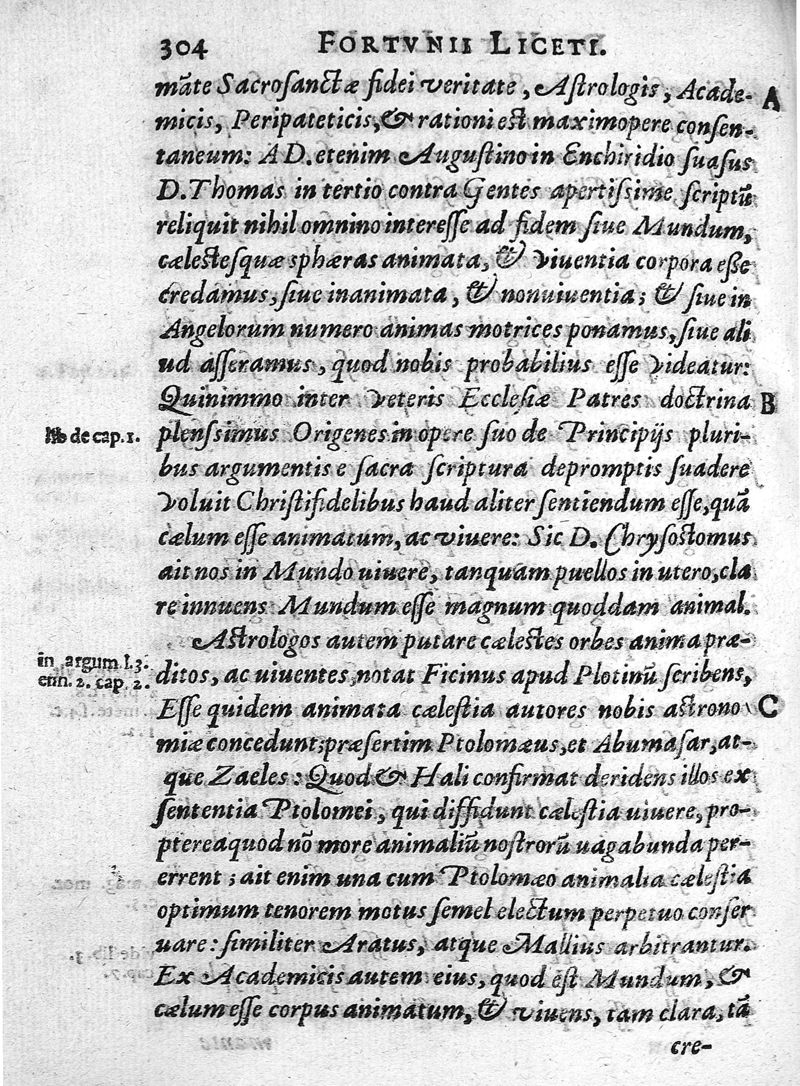 304 FORTVNII LICETI.
mãte Sacrosanctæ fidei veritate, Astrologis, Acade- A
micis, Peripateticis, & rationi est maximopere consen-
taneum: A D. etenim Augustino in Enchiridio suasus
D. Thomas in tertio contra Gentes apertissime scriptũ
reliquit nihil omnino interesse ad fidem siue Mundum,
cælestesquæ sphæras animata, & viuentia corpora esse
credamus, siue inanimata, & nonuiuentia; & siue in
Angelorum numero animas motrices ponamus, siue ali
ud asseramus, quod nobis probabilius esse videatur:
Quinimmo inter veteris Ecclesiæ Patres doctrina B
lib de cap. 1. plenssimus Origenes in opere suo de Principijs pluri-
bus argumentis e sacra scriptura depromptis suadere
voluit Christifidelibus haud aliter sentiendum esse, quã
cælum esse animatum, ac viuere: Sic D. Chrysostomus
ait nos in Mundo uiuere, tanquam puellos in utero, cla
re innuens Mundum esse magnum quoddam animal.
Astrologos autem putare cælestes orbes anima præ-
in argum l. 3.
enn. 2. cap. 2. ditos, ac uiuentes, notat Ficinus apud Plotinũ scribens,
Esse quidem animata cælestia autores nobis astrono C
miæ concedunt; præsertim Ptolomæus, et Abumasar, at-
que Zaeles: Quod & Hali confirmat deridens illos ex
sententia Ptolomei, qui diffidunt cælestia uiuere, pro-
ptereaquod nõ more animaliũ nostrorũ uagabunda per-
errent; ait enim una cum Ptolomæo animalia cælestia
optimum tenorem motus semel electum perpetuo conser
uare: similiter Aratus, atque Mallius arbitrantur.
Ex Academicis autem eius, quod est Mundum, &
cælum esse corpus animatum, & viuens, tam clara, tã
cre-